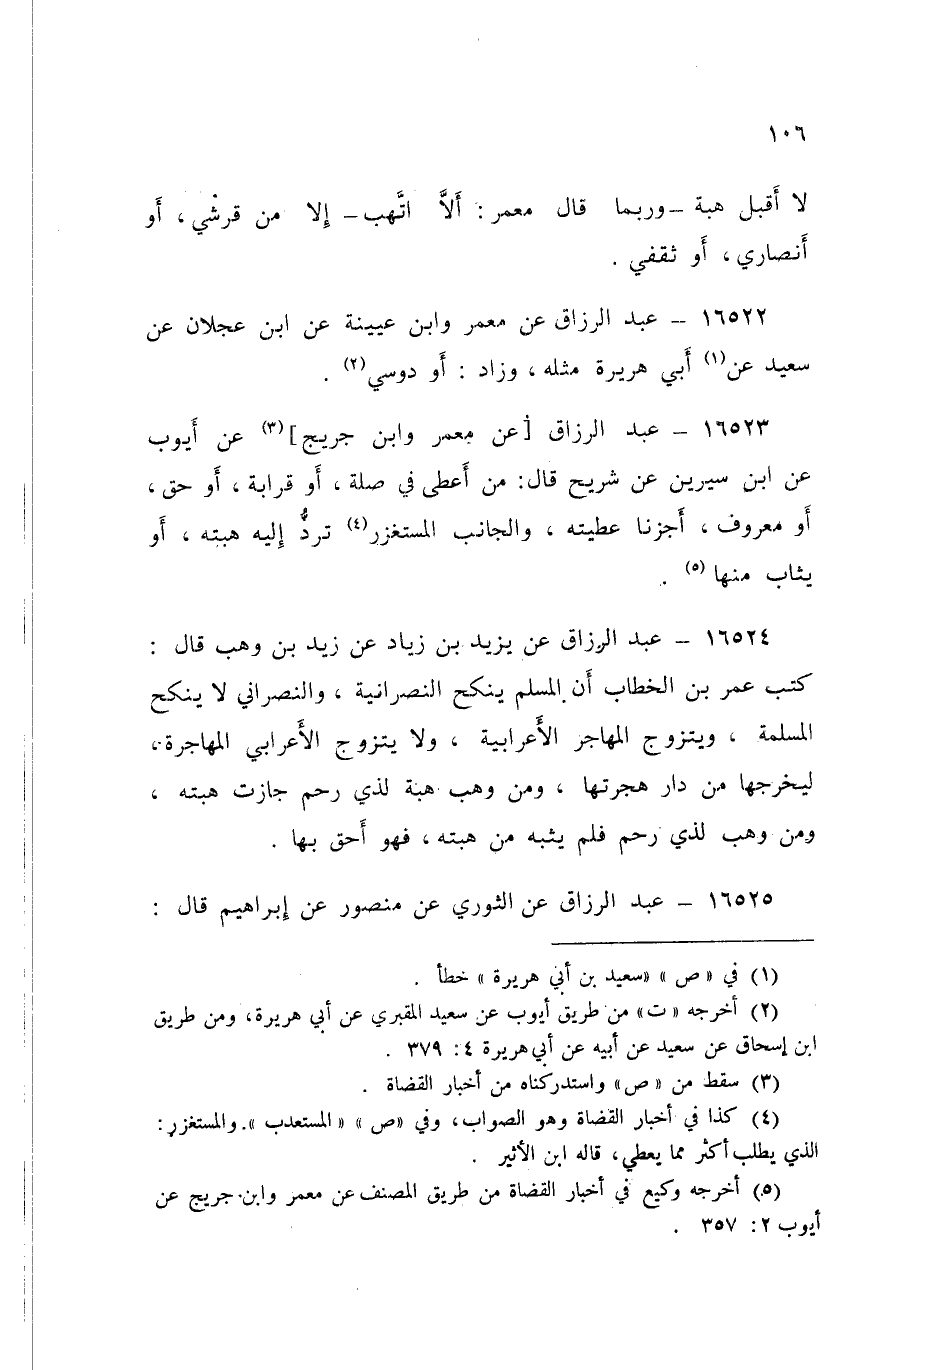 ١٠٦
لا أقبل هبة –وربما قال معمر : ألاَّ اتَّهب– إلا من قرشي ، أو
أنصاري ، أو ثقفي .
١٦٥٢٢ – عبد الرزاق عن معمر وابن عيينة عن ابن عجلان عن
سعيد عن(١) أبي هريرة مثله ، وزاد : أو دوسي(٢) .
١٦٥٢٣ – عبد الرزاق [عن معمر وابن جريج](٣) عن أيوب
عن ابن سيرين عن شريح قال: من أعطى في صلة ، أو قرابة ، أو حق ،
أو معروف ، أجزنا عطيته ، والجانب المستغزر(٤) تردُّ إليه هبته ، أو
يثاب منها (٥) .
١٦٥٢٤ – عبد الرزاق عن يزيد بن زياد عن زيد بن وهب قال :
كتب عمر بن الخطاب أن المسلم ينكح النصرانية ، والنصراني لا ينكح
المسلمة ، ويتزوج المهاجر الأعرابية ، ولا يتزوج الأعرابي المهاجرة ،
ليخرجها من دار هجرتها ، ومن وهب هبة لذي رحم جازت هبته ،
ومن وهب لذي رحم فلم يثبه من هبته ، فهو أحق بها .
١٦٥٢٥ – عبد الرزاق عن الثوري عن منصور عن إبراهيم قال :
(١) في « ص » «سعيد بن أبي هريرة » خطأ .
(٢) أخرجه « ت» من طريق أيوب عن سعيد المقبري عن أبي هريرة، ومن طريق
ابن إسحاق عن سعيد عن أبيه عن أبي هريرة ٤: ٣٧٩ .
(٣) سقط من « ص» واستدركناه من أخبار القضاة .
(٤) كذا في أخبار القضاة وهو الصواب، وفي «ص » « المستعدب ». والمستغزر:
الذي يطلب أكثر مما يعطي، قاله ابن الأثير .
(٥) أخرجه وكيع في أخبار القضاة من طريق المصنف عن معمر وابن جريج عن
أيوب ٢: ٣٥٧ .